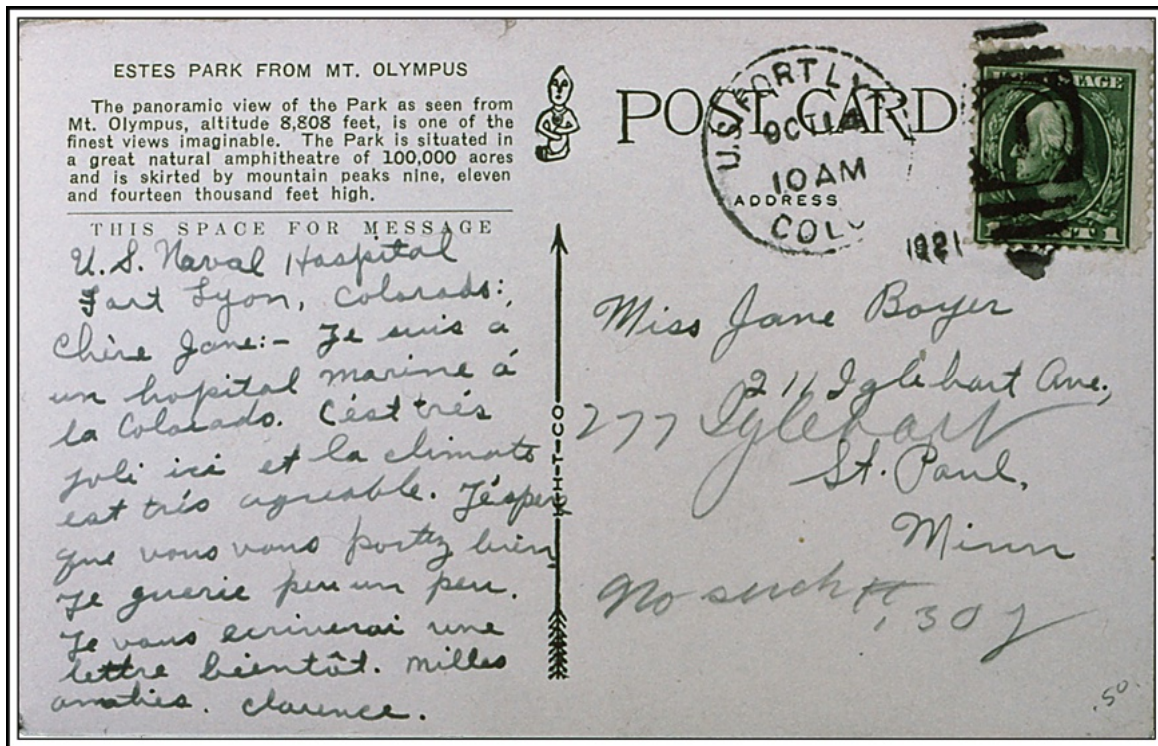 ESTES PARK FROM MT. OLYMPUS
The panoramic view of the Park as seen from
Mt. Olympus, altitude 8,808 feet, is one of the
finest views imaginable. The Park is situated in
a great natural amphitheatre of 100,000 acres
and is skirted by mountain peaks nine, eleven
and fourteen thousand feet high.
THIS SPACE FOR MESSAGE
U.S. Naval Hospital
Fort Lyon, Colorado:,
Chère Jane:- Je suis a
un hopital marine á
la Colorado. C'est trés
joli ici et la climate
est trés agreable. J'éspere
que vous vous portez bien
Je guerie peu un peu.
Je vous ecriverai une
lettre bientôt. Milles
amaties. Clarence.
OCIILI
POST CARD
U.S. FORT LY
OCT 14
10 AM
COLO
1921
ADDRESS
POSTAGE
1 CENT 1
Miss Jane Boyer
211 Iglehart Ave.,
277 Iglehart
St. Paul,
Minn
No such #, 307
.50